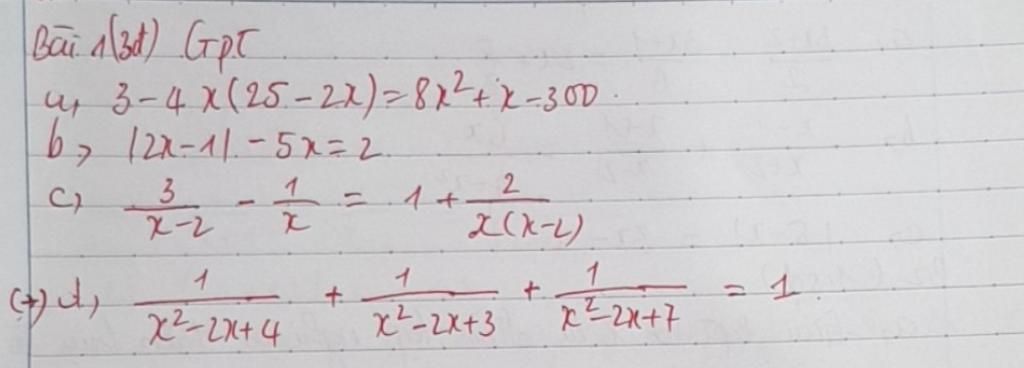 Bài 1(3đ) GpT
a, 3-4x(25-2x)=8x²+x-300.
b, |2x-1|-5x=2
c, \frac{3}{x-2} - \frac{1}{x} = 1 + \frac{2}{x(x-2)}
(+) d, \frac{1}{x²-2x+4} + \frac{1}{x²-2x+3} + \frac{1}{x²-2x+7} = 1.